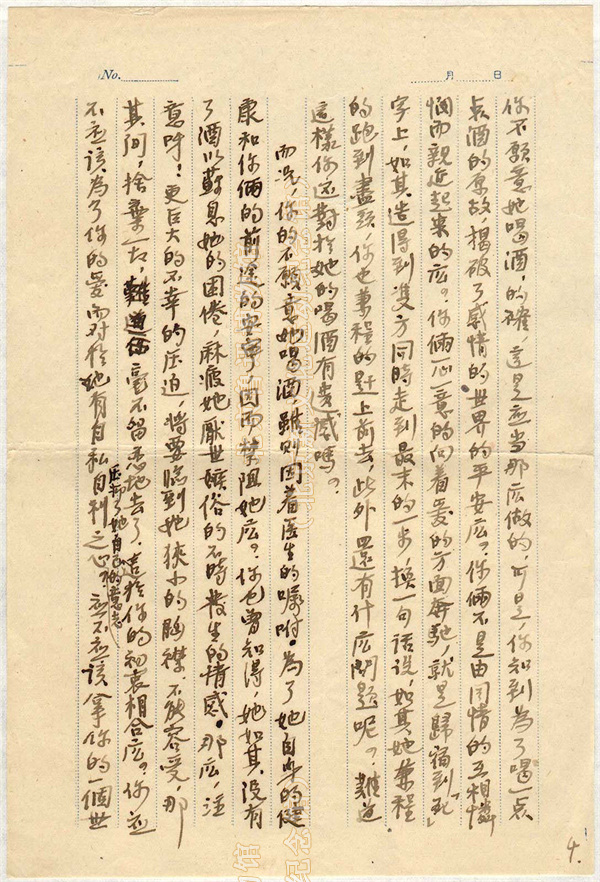 No.
月 日
你不願意她喝酒，的確，這是应当那広做的，可是，你知到為了喝一点
点酒的原故，揭破了感情的世界的平安広？你倆不是由同情的互相憐
憫而親近起来的広？你倆一心一意的向着爱的方面奔馳，就是歸宿到「死」
字上，如其造得到雙方同時走到最末的一步，换一句話说，如其她兼程
的跑到盡頭，你也兼程的赶上前去，此外還有什広問題呢？難道
這樣你还對於她的喝酒有遗感嗎？
而况，你的不願意她喝酒，雖則因着医生的嘱咐。為了她自身的健
康和你倆的前途的安寧因而禁阻她広？你也曾知得，她如其没有
了酒以蘇息她的困倦，麻痹她厭世嫉俗的不時發生的情感。那広，注
意呀！更巨大的不幸的压迫，將要臨到她狹小的胸襟，不能容受，那
其间，捨棄一切，毫不留恋地去了。這於你的初衷相合広？你应
不应該為了你的爱而对於她有自私自利之心？应不应該拿你的一個世
压却了她自己的意志
4.